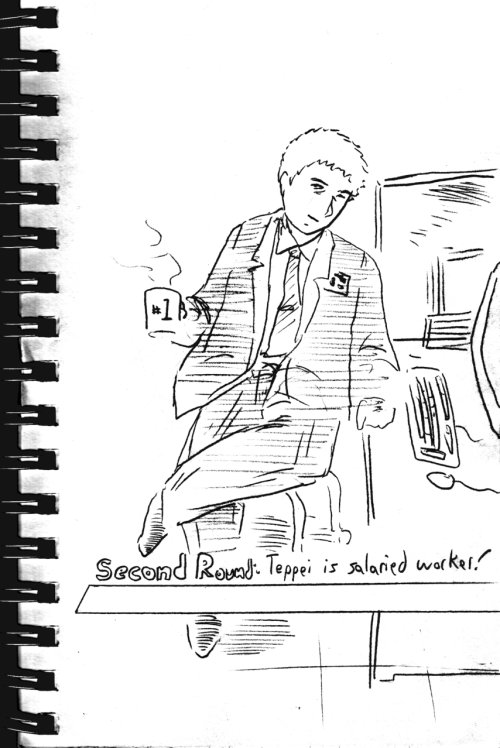 #1 B
Second Round: Teppei is salaried worker!